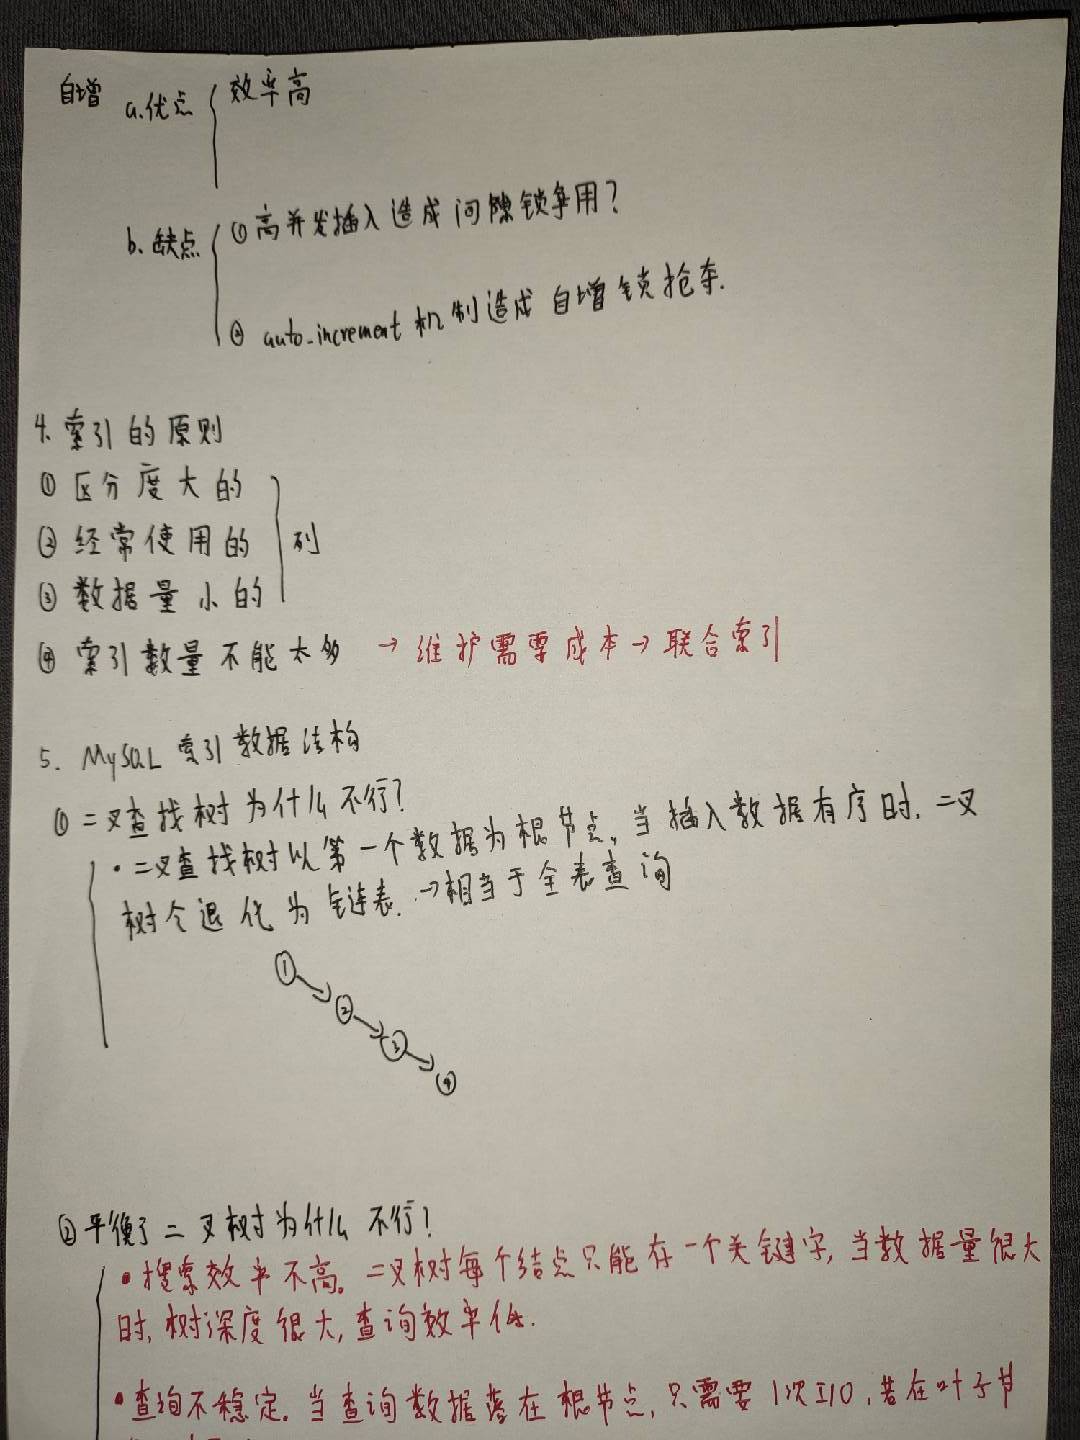 自增
a.优点 { 效率高
b.缺点 { ① 高并发插入造成间隙锁争用?
② auto-increment 机制造成自增锁抢夺.
4. 索引的原则
① 区分度大的
② 经常使用的 } 列
③ 数据量小的
④ 索引数量不能太多 → 维护需要成本 → 联合索引
5. MySQL 索引数据结构
① 二叉查找树为什么不行?
· 二叉查找树以第一个数据为根节点。当插入数据有序时, 二叉
树会退化为链表. → 相当于全表查询
① → ② → ③ → ④
② 平衡了二叉树为什么不行?
· 搜索效率不高。二叉树每个结点只能存一个关键字, 当数据量很大
时, 树深度很大, 查询效率低.
· 查询不稳定. 当查询数据落在根节点, 只需要1次I/O, 若在叶子节